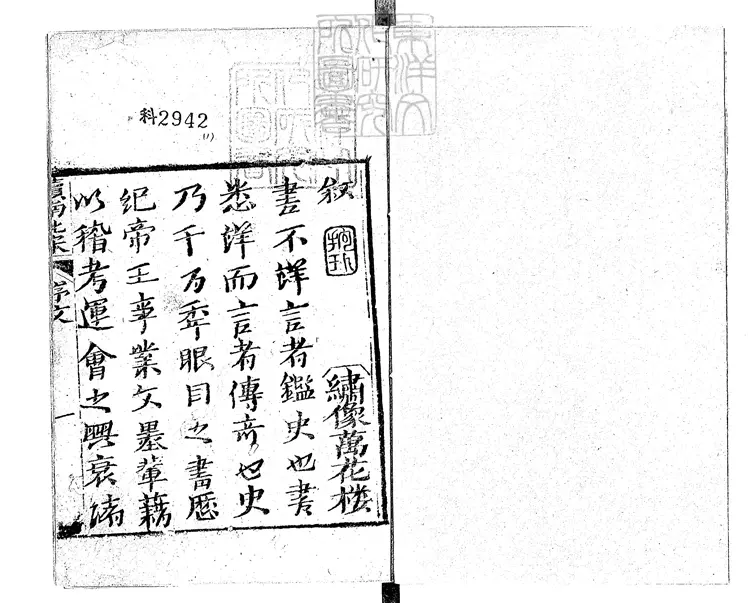 科2942
叙
繡像萬花楼
書不詳言者鑑史也書
悉詳而言者傳竒也史
乃千乃秊眼目之書歷
紀帝王事業文墨輩藉
以稽考運會之興衰諸
序文
一